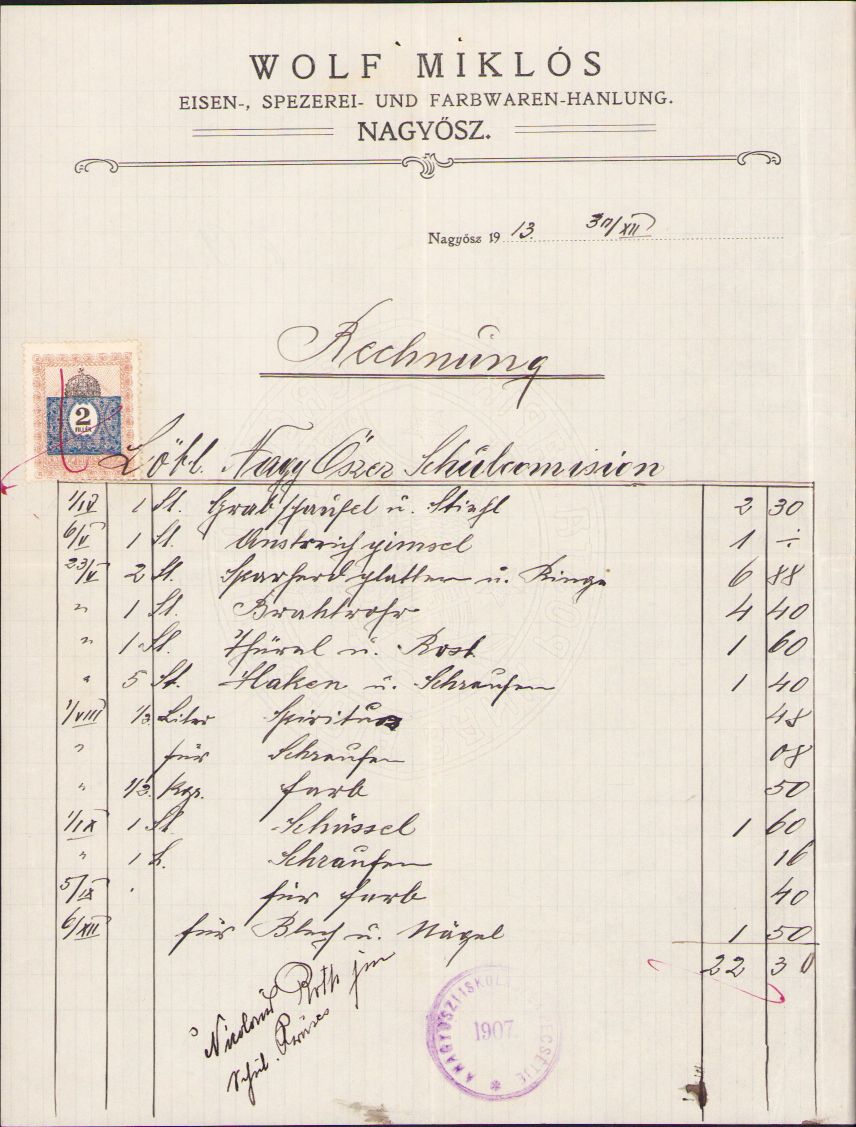 WOLF MIKLÓS
EISEN-, SPEZEREI- UND FARBWAREN-HANLUNG.
NAGYŐSZ.
Nagyősz 1913 30/XII
Rechnung
2
FILLÉR
Löbl. Nagy Öszer Schulcomision
1/IV 1 St. Grabschaufel u. Stiehl 2 30
6/V 1 St. Anstreichpimsel 1 ÷
23/V 2 St. Sparherdplatten u. Ringe 6 88
" 1 St. Brahtrohr 4 40
" 1 St. Thürel u. Rost 1 60
" 5 St. Haken u. Schraufen 1 40
1/VIII 1/2 Liter Spiritus 48
" für Schraufen 08
" 1/2 Kgr. farb 50
1/IX 1 St. Schüssel 1 60
" 1 Schraufen 16
5/IX für farb 40
6/XII für Blech u. Nägel 1 50
22 30
Roth jun
Schul.
A NAGYŐSZI ISKOLA PECSÉTJE
1907